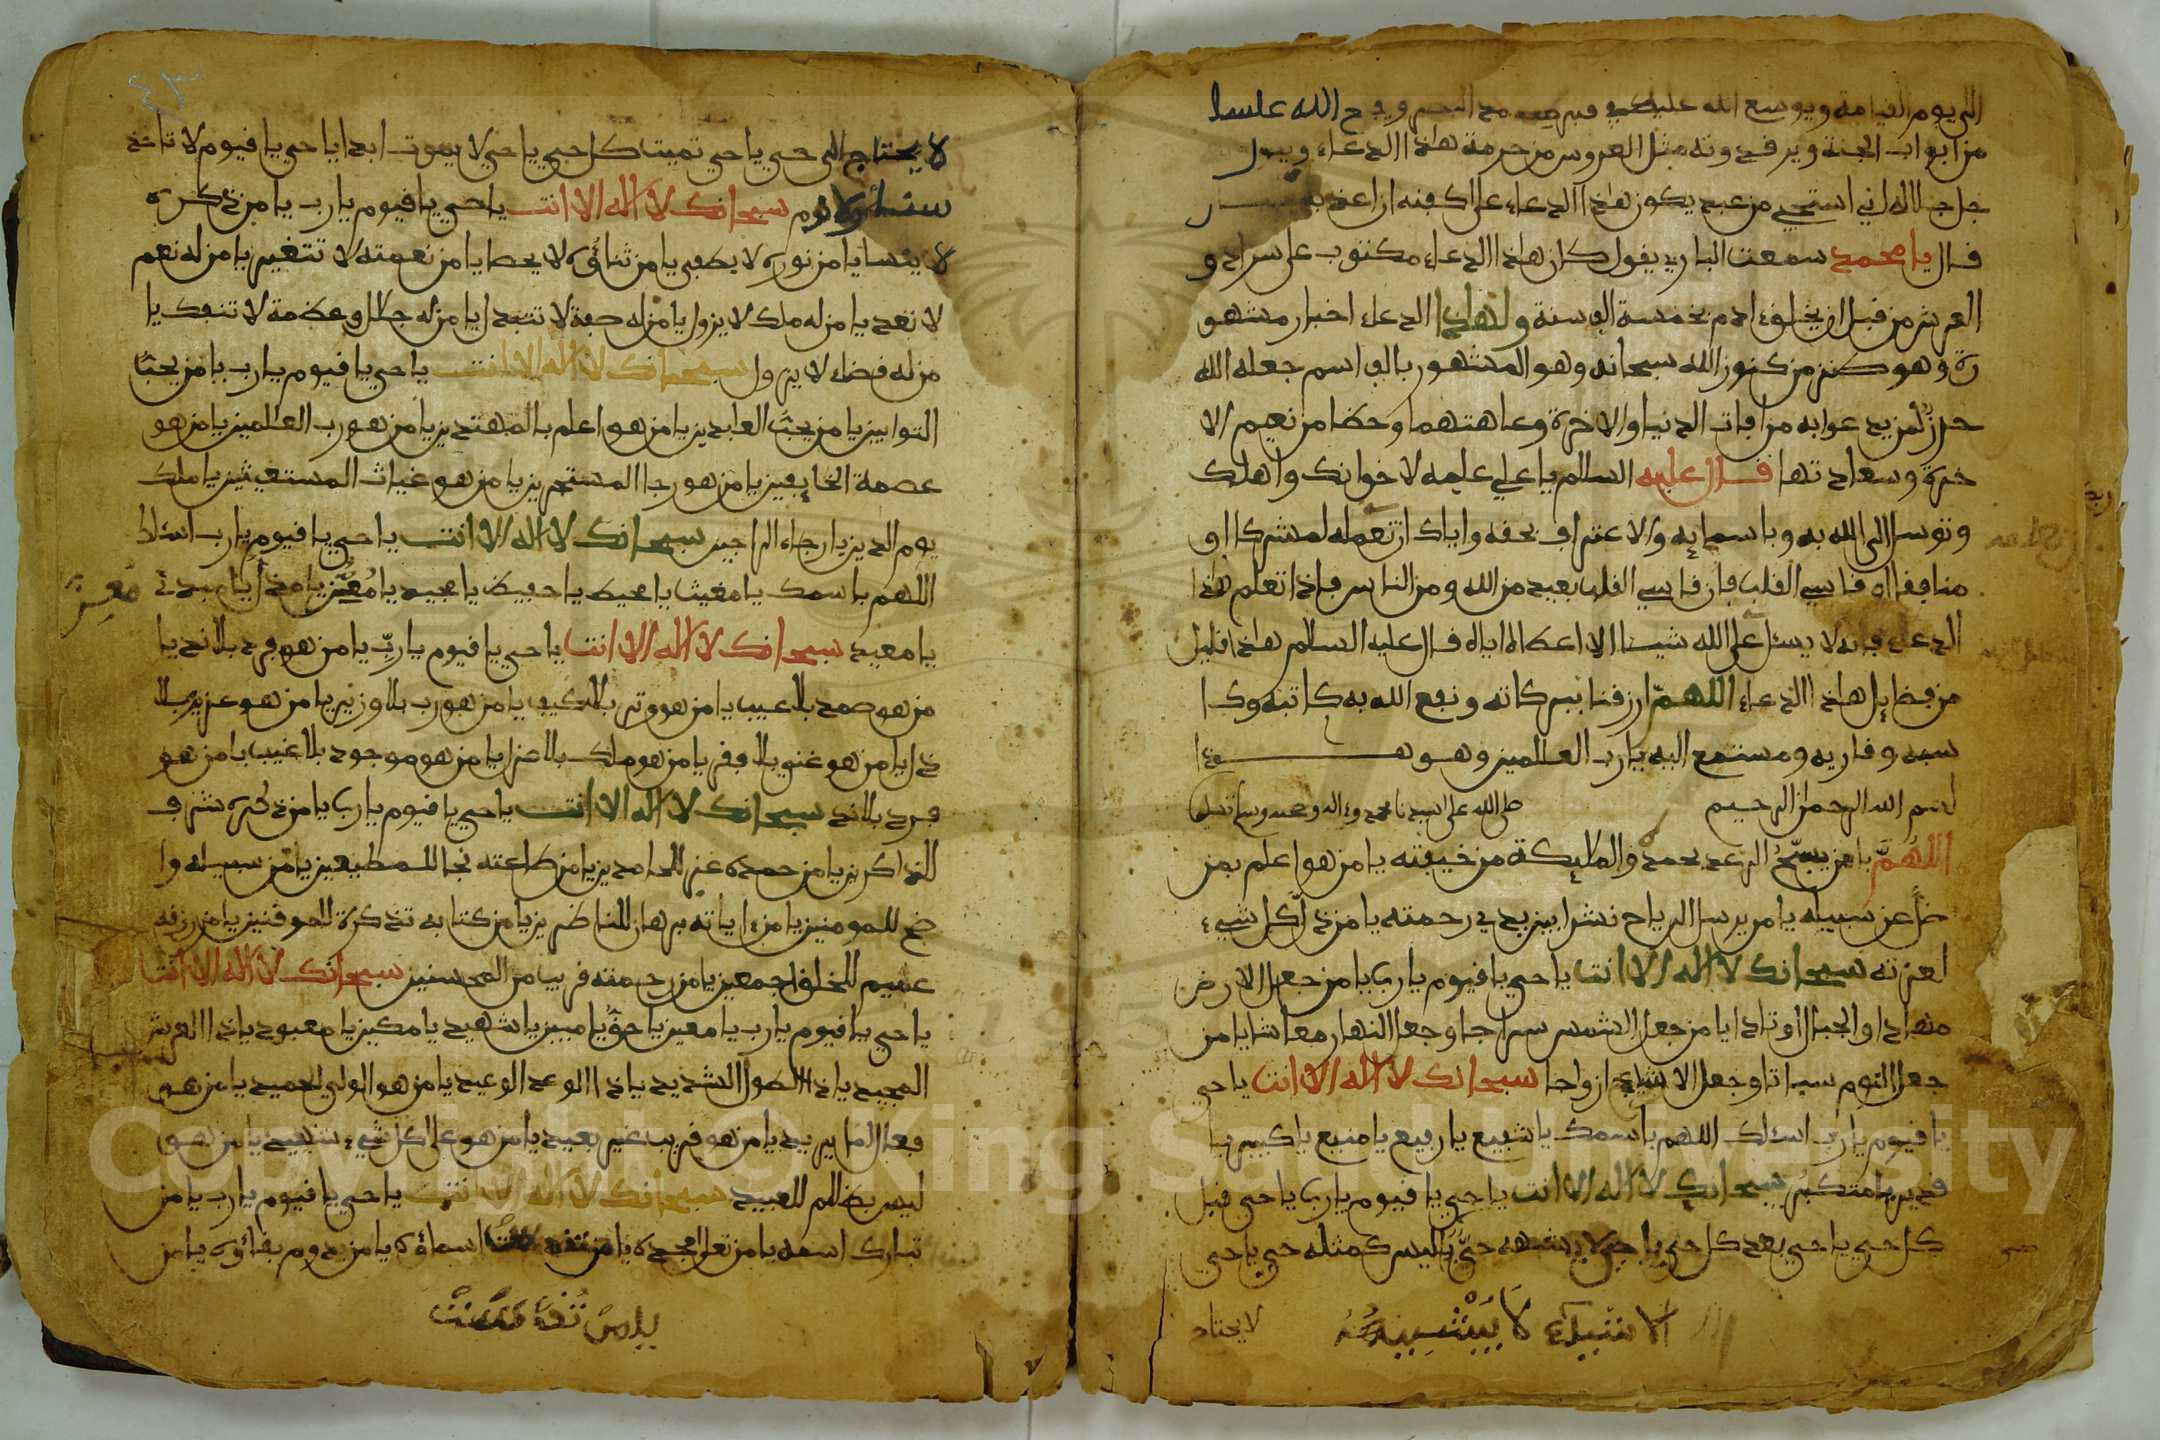 الى يوم القيامة ويوسع الله عليك في قبره مد البصر ويفتح الله عليه
من ابواب الجنة ويرقد ونه مثل العروس من حرمة هذا الدعاء ويقول
جل جلاله اني استحي من عبد يكون هذا الدعاء على كفنه ان اعذبه
قال يا محمد سمعت الباري يقول كان هذا الدعاء مكتوب على سرادق
العرش من قبل ان يخلق ادم بخمسة الف سنة ولهذا الدعاء اخبار مشهو
رة وهو كنز من كنوز الله سبحانه وهو المشهور بالف اسم جعله الله
حرز لمن يدعوا به من افات الدنيا والاخرة وعاهتهما وحضا من نعيم الا
خرة وسعادتها قال عليه السلام يا علي علمه لاخوانك واهلك
وتوسل الى الله به وباسمايه والاعتراف بحقه واياك ان تعمله لمشركا او
منافقا او قاسي القلب فان قاسي القلب بعيد من الله ومن الناس فاذا تعلم هذا
الدعاء فانه لا يسئل على الله شيئا الا اعطاه اياه قال عليه السلام هذا قليل
من فضايل هذا الدعاء اللهم ارزقنا بركاته ونفع الله به كاتبه وكا
سبه وقاريه ومستمع اليه يارب العالمين وهو هذا
بسم الله الرحمن الرحيم صلى الله على سيدنا محمد وءاله وصحبه وسلم تسليما
اللهم يا من يسبح الرعد بحمده والملايكة من خيفته يا من هو اعلم بمن
ضل عن سبيله يا من يرسل الرياح نشرا بين يدي رحمته يا من ذل كل شيء
لعزته سبحانك لا اله الا انت يا حي يا قيوم يا رب يا من جعل الارض
مهادا والجبال اوتادا يا من جعل الشمس سراجا وجعل النهار معاشا يا من
جعل النوم سباتا وجعل الاشياء ازواجا سبحانك لا اله الا انت يا حي
يا قيوم يا رب اسئلك اللهم باسمك يا شفيع يا رفيع يا منيع يا كبير يا
قدير يا متكبر سبحانك لا اله الا انت يا حي يا قيوم يا رب يا حي قبل
كل حي يا حي بعد كل حي يا حي لا يشبهه حي يا ليس كمثله حي يا حي
لا يحتاج
لا يحتاج الى حي يا حي تميت كل حي يا حي لا يموت ابدا يا حي يا قيوم لا تاخذ
سنة ولا نوم سبحانك لا اله الا انت يا حي يا قيوم يا رب يا من ذكره
لا ينسا يا من نوره لا يطفى يا من ثناؤه لا يحصا يا من نعمته لا تتغير يا من له نعم
لا تعد يا من له ملك لا يزول يا من له صفة لا تتبدل يا من له جلال وعظمة لا تنفك يا
من له فضل لا يزول سبحانك لا اله الا انت يا حي يا قيوم يا رب يا من يحب
التوابين يا من يحب العابدين يا من هو اعلم بالمهتدين يا من هو رب العالمين يا من هو
عصمة الخايفين يا من هو رجا المستجيرين يا من هو غياث المستغيثين يا ملك
يوم الدين يا رجاء الراجين سبحانك لا اله الا انت يا حي يا قيوم يا رب اسئلك
اللهم باسمك يا مغيث يا محيط يا حفيظ يا مجيد يا معز يا مذل يا مبدئ
معز
يا معيد سبحانك لا اله الا انت يا حي يا قيوم يا رب يا من هو فرد بلا ند يا
من هو صمد بلا عيب يا من هو وتر بلا كيف يا من هو رب بلا وزير يا من هو عزيز بلا
ذل يا من هو غني بلا فقر يا من هو ملك بلا عزل يا من هو موجود بلا غيب يا من هو
فرد بلا ند سبحانك لا اله الا انت يا حي يا قيوم يا رب يا من ذكره شرف
للذاكرين يا من حمده عز للحامدين يا من طاعته نجا للمطيعين يا من سبيله وا
ضح للمومنين يا من ءاياته برهان للناظرين يا من كتابه تذكرة للموقنين يا من رزقه
عميم للخلق اجمعين يا من رحمته قريب من المحسنين سبحانك لا اله الا انت
يا حي يا قيوم يا رب يا معين يا حق يا مبين يا شهيد يا مكين يا معبود يا ذا العرش
المجيد يا ذا الطول الشديد يا ذا الوعد الوعيد يا من هو الولي الحميد يا من هو
فعال لما يريد يا من هو قريب غير بعيد يا من هو على كل شيء شهيد يا من هو
ليس بظلام للعبيد سبحانك لا اله الا انت يا حي يا قيوم يا رب يا من
تبارك اسمه يا من تعلى مجده يا من تقدست اسماؤه يا من يدوم بقاؤه يا من
Copyright © King Saud University